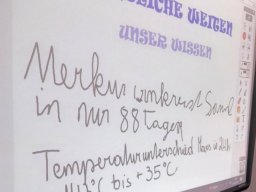 LICHE WEITEN
UNSER WISSEN
Merkur umkreist Sonne
in nur 88 Tagen
Temperaturunterschied
bis +35°C